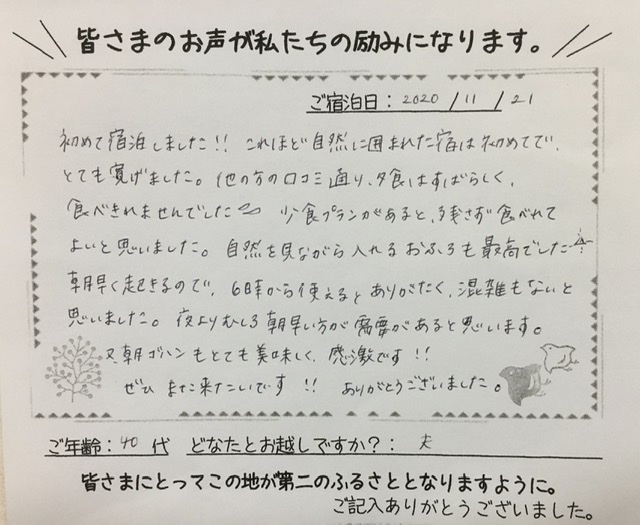 皆さまのお声が私たちの励みになります。
ご宿泊日：2020/11/21
初めて宿泊しました!! これほど自然に囲まれた宿は初めてで、
とても寛げました。他の方の口コミ通り、夕食はすばらしく、
食べきれませんでした 少食プランがあると、残さず食べれて
よいと思いました。自然を見ながら入れるおふろも最高でした
朝早く起きるので、6時から使えるとありがたく、混雑もないと
思いました。夜よりむしろ朝早い方が需要があると思います。
又、朝ゴハンもとても美味しく、感激です!!
ぜひまた来たいです!! ありがとうございました。
ご年齢：40代 どなたとお越しですか？：夫
皆さまにとってこの地が第二のふるさととなりますように。
ご記入ありがとうございました。